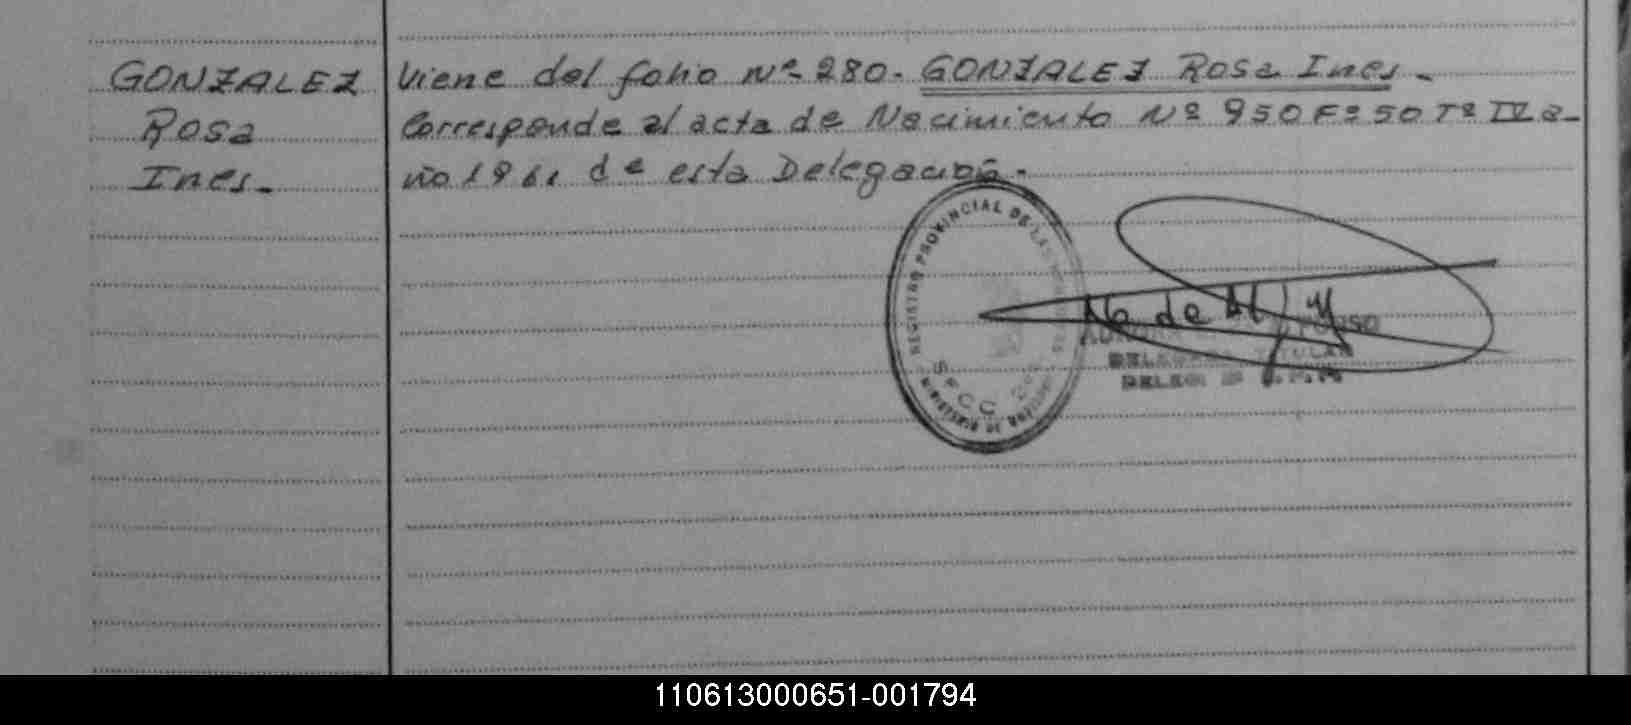 GONZALEZ
Rosa
Ines.-
Viene del folio Nº 280.- GONZALEZ Rosa Ines.-
Corresponde al acta de Nacimiento Nº 950 Fº 50 Tº IV a-
ño 1961 de esta Delegación.-
REGISTRO PROVINCIAL DE LAS
SECC
MINISTERIO DE
TITULAR
110613000651-001794